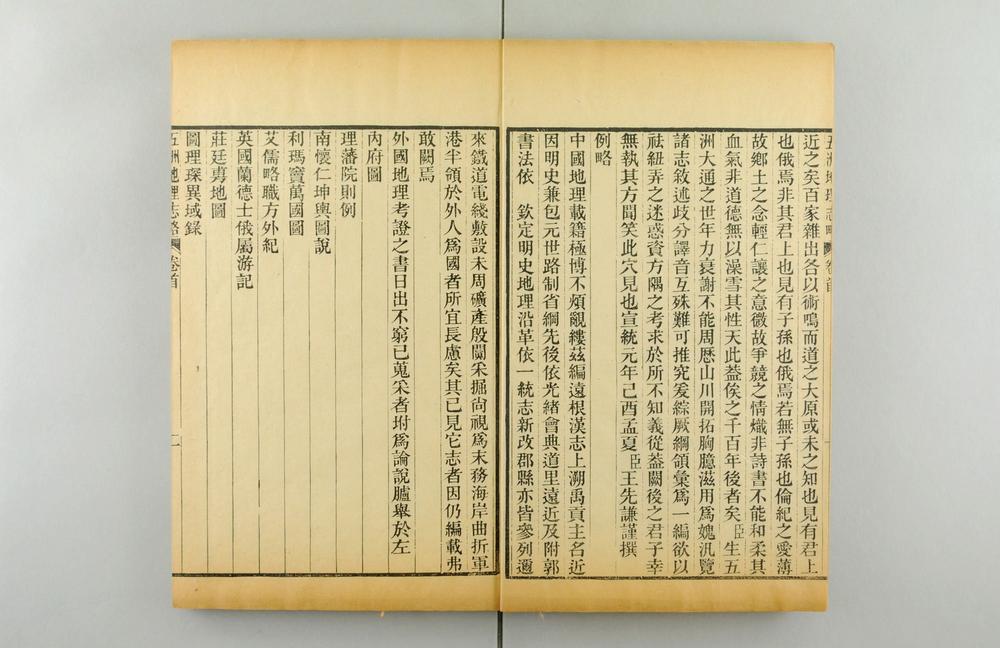 五洲地理志略 卷首
近之矣百家雜出各以術鳴而道之大原或未之知也見有君上
也俄焉非其君上也見有子孫也俄焉若無子孫也倫紀之愛薄
故鄉土之念輕仁讓之意微故爭競之情熾非詩書不能和柔其
血氣非道德無以澡雪其性天此葢俟之千百年後者矣臣生五
洲大通之世年力衰謝不能周歷山川開拓胸臆滋用爲媿汎覽
諸志敘述歧分譯音互殊難可推究爰綜厥綱領彙爲一編欲以
祛紐弄之迷惑資方隅之考求於所不知義從葢闕後之君子幸
無執其方聞笑此穴見也宣統元年己酉孟夏臣王先謙謹撰
例略
中國地理載籍極博不煩覼縷茲編遠根漢志上溯禹貢主名近
因明史兼包元世路制省綱先後依光緒會典道里遠近及附郭
書法依　欽定明史地理沿革依一統志新改郡縣亦皆參列邇
來鐵道電綫敷設未周礦產殷闐采掘尙視爲末務海岸曲折軍
港半領於外人爲國者所宜長慮矣其已見它志者因仍編載弗
敢闕焉
外國地理考證之書日出不窮已蒐采者坿爲論說臚舉於左
內府圖
理藩院則例
南懷仁坤輿圖說
利瑪竇萬國圖
艾儒略職方外紀
英國蘭德士俄屬游記
莊廷旉地圖
圖理琛異域錄
五洲地理志略 卷首 二